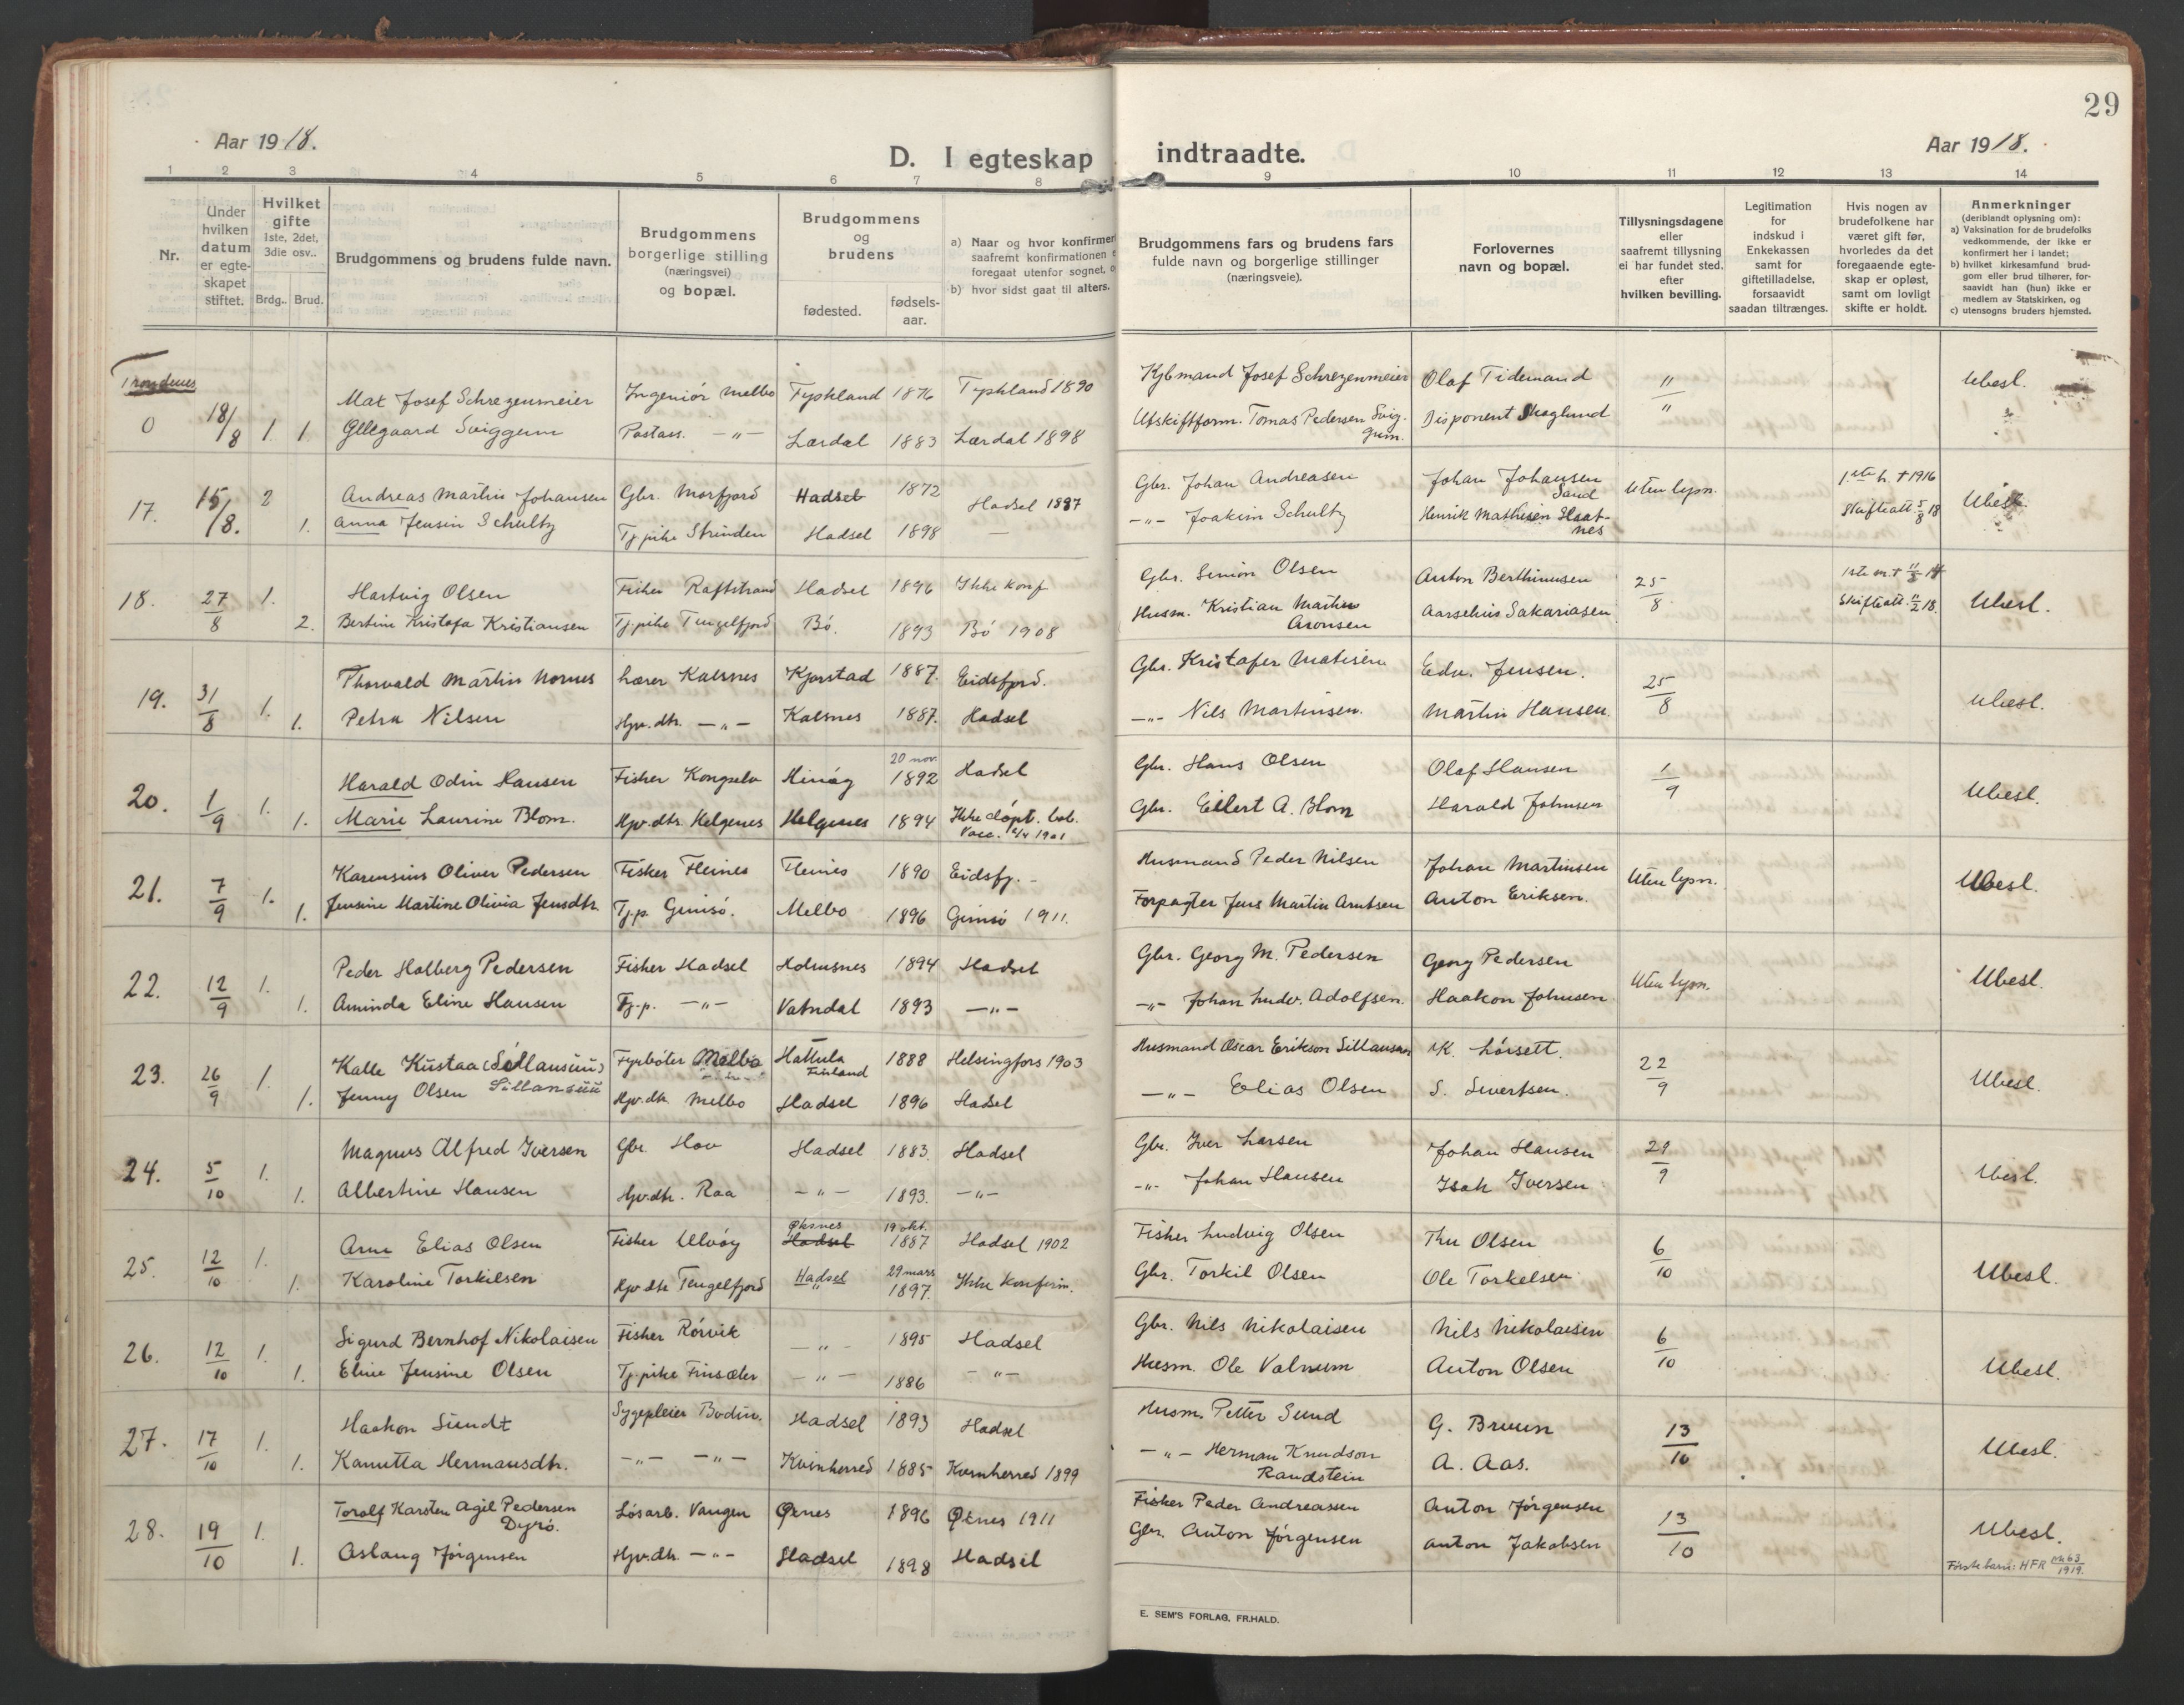 29
Aar 1918.
D. I egteskap indtraadte.
Aar 1918.
1 2 3 4 5 6 7 8 9 10 11 12 13 14
Nr.
Under hvilken datum er egteskapet stiftet.
Hvilket gifte 1ste, 2det, 3die osv..
Brdg.. Brud.
Brudgommens og brudens fulde navn.
Brudgommens borgerlige stilling (næringsvei) og bopæl.
Brudgommens og brudens
fødested.
fødsels-aar.
a) Naar og hvor konfirmer
saafremt konfirmationen e
foregaat utenfor sognet, o
b) hvor sidst gaat til alters.
Brudgommens fars og brudens fars
fulde navn og borgerlige stillinger
(næringsveie).
Forlovernes
navn og bopæl.
Tillysningsdagene
eller
saafremt tillysning
ei har fundet sted.
efter
hvilken bevilling.
Legitimation
for
indskud i
Enkekassen
samt for
giftetilladelse,
forsaavidt
saadan tiltrænges.
Hvis nogen av
brudefolkene har
været gift før,
hvorledes da det
foregaaende egte-
skap er opløst,
samt om lovligt
skifte er holdt.
Anmerkninger
(deriblandt oplysning om):
a) Vaksination for de brudefolks
vedkommende, der ikke er
konfirmert her i landet;
b) hvilket kirkesamfund brud-
gom eller brud tilhører, for-
saavidt han (hun) ikke er
medlem av Statskirken, og
c) utensogns bruders hjemsted.
Trondenes
0 18/8 1. Max Josef Schrezenmeier Ingeniör Melbo Tyskland 1876 Tyskland 1890 Kjbmand Josef Schrezenmeier Olaf Tidemand " Ubesl.
1 Gllegaard Sviggum Postass. -"- Lærdal 1883 Lærdal 1898 Utskiftform. Tomas Pedersen Svig-gum. Disponent Skoglund "
17. 15/8. 2 Andreas Martin Johansen Gbr. Morfjord Hadsel 1872 Hadsel 1887 Gbr. Johan Andreasen Johan Johansen Sand Uten lysn. 1.ste h. † 1916 Ubesl.
1. Anna Jensin Schultz Tj.pike Strinden Hadsel 1898 — -"- Joakim Schultz Henrik Mathisen Skaat-nes Skifteatt. 5/8 18
18. 27/8 1. Hartvig Olsen Fisker Raftstrand Hadsel 1896 Ikke konf Gbr. Simon Olsen Anton Berthinusen 25/8 1ste m. † Ubesl.
2. Bertine Kristofa Kristiansen Tj.pike Tengelfjord Bö. 1893 Bö 1908 Husm. Kristian Martin Aronsen Aarselius Sakariasen Skifteatt. 11/2 18.
19. 31/8 1. Thorvald Martin Nornes Lærer Kalsnes Kjorstad 1887. Eidsfjord. Gbr. Kristofer Matisen Edv. Jensen. 25/8 Ubesl.
1. Petra Nilsen Hjv.dtr. -"- Kalsnes 1887. Hadsel -"- Nils Martinsen. Martin Hansen
20. 1/9 1. Harald Odin Hansen Fisker Kongselv Hinöy 20 nov. 1892 Hadsel Gbr. Hans Olsen Olaf Hansen 1/9 Ubesl.
1. Marie Laurine Blom. Hjv.dtr. Helgenes Helgenes 1894 Ikke döpt. Vacc. 1901 Gbr. Eilert A. Blom Harald Johnsen
21. 7/9 1. Karensius Oliver Pedersen Fisker Fleines Fleines 1890 Eidsfj. - Husmand Peder Nilsen Johan Martinsen Uten lysn. Ubesl.
1. Jensine Martine Olivia Jensdtr. Tj.p. Gimsö. Melbo 1896 Gimsö 1911. Forpagter Jens Martin Arntsen Anton Eriksen.
22. 12/9 1. Peder Holberg Pedersen Fisker Hadsel Holmsnes 1894 Hadsel Gbr. Georg M. Pedersen Georg Pedersen Uten lysn. Ubesl.
1. Aminda Eline Hansen Tj.p. -"- Vatndal 1893 -"- -"- Johan Ludv. Adolfsen. Haakon Johnsen
23. 26/9 1. Kalle Kustaa (Sillansuu) Fyrböter Melbo Hattula Finland 1888 Helsingfors 1903 Husmand Oscar Erikson Sillansuu K. Lörsett. 22/9 Ubesl.
1. Jenny Olsen Sillansuu Hjv.dtr. Melbo Hadsel 1896 Hadsel -"- Elias Olsen S. Sivertsen.
24. 5/10 1. Magnus Alfred Iversen Gbr. Hov Hadsel 1883. Hadsel Gbr. Iver Larsen Johan Hansen 29/9 Ubesl.
1. Albertine Hansen Hjv.dtr. Raa -"- 1893. -"- -"- Johan Hansen Isak Iversen
25. 12/10 1. Arne Elias Olsen Fisker Ulvöy Øksnes Hadsel 19 okt. 1887 Hadsel 1902 Fisker Ludvig Olsen Thv Olsen 6/10 Ubesl.
1. Karoline Torkilsen Hjv.dtr Tengelfjord Hadsel " 29 mars 1897. Ikke konfirm. Gbr. Torkil Olsen Ole Torkelsen
26. 12/10 1. Sigurd Bernhof Nikolaisen Fisker Rörvik -"- 1895 Hadsel Gbr. Nils Nikolaisen Nils Nikolaisen 6/10 Ubesl.
1. Eline Jensine Olsen Tj.pike Finsæter -"- 1886 -"- Husm. Ole Valnum Anton Olsen
27. 17/10 1. Haakon Sundt Sygepleier Bodin. Hadsel 1893 Hadsel Husm. Petter Sund G. Bruun 13/10 Ubesl.
1. Kanutta Hermansdtr. -"- -"- Kvinherred 1885 Kvinherred 1899 -"- Herman Knudson Randstein A. Aas.
28. 19/10 1. Torolf Karsten Agil Pedersen Dyrö. Lösarb. Vangen Øxnes 1896 Øxnes 1911 Fisker Peder Andreassen Anton Jörgensen 13/10 Ubesl.
1. Aslaug Jörgensen Hjv.dtr. -"- Hadsel 1898 Hadsel Gbr. Anton Jörgensen Anton Jakobsen
Første barn: HFR Nr 63/1919.
E. SEM'S FORLAG, FR.HALD.